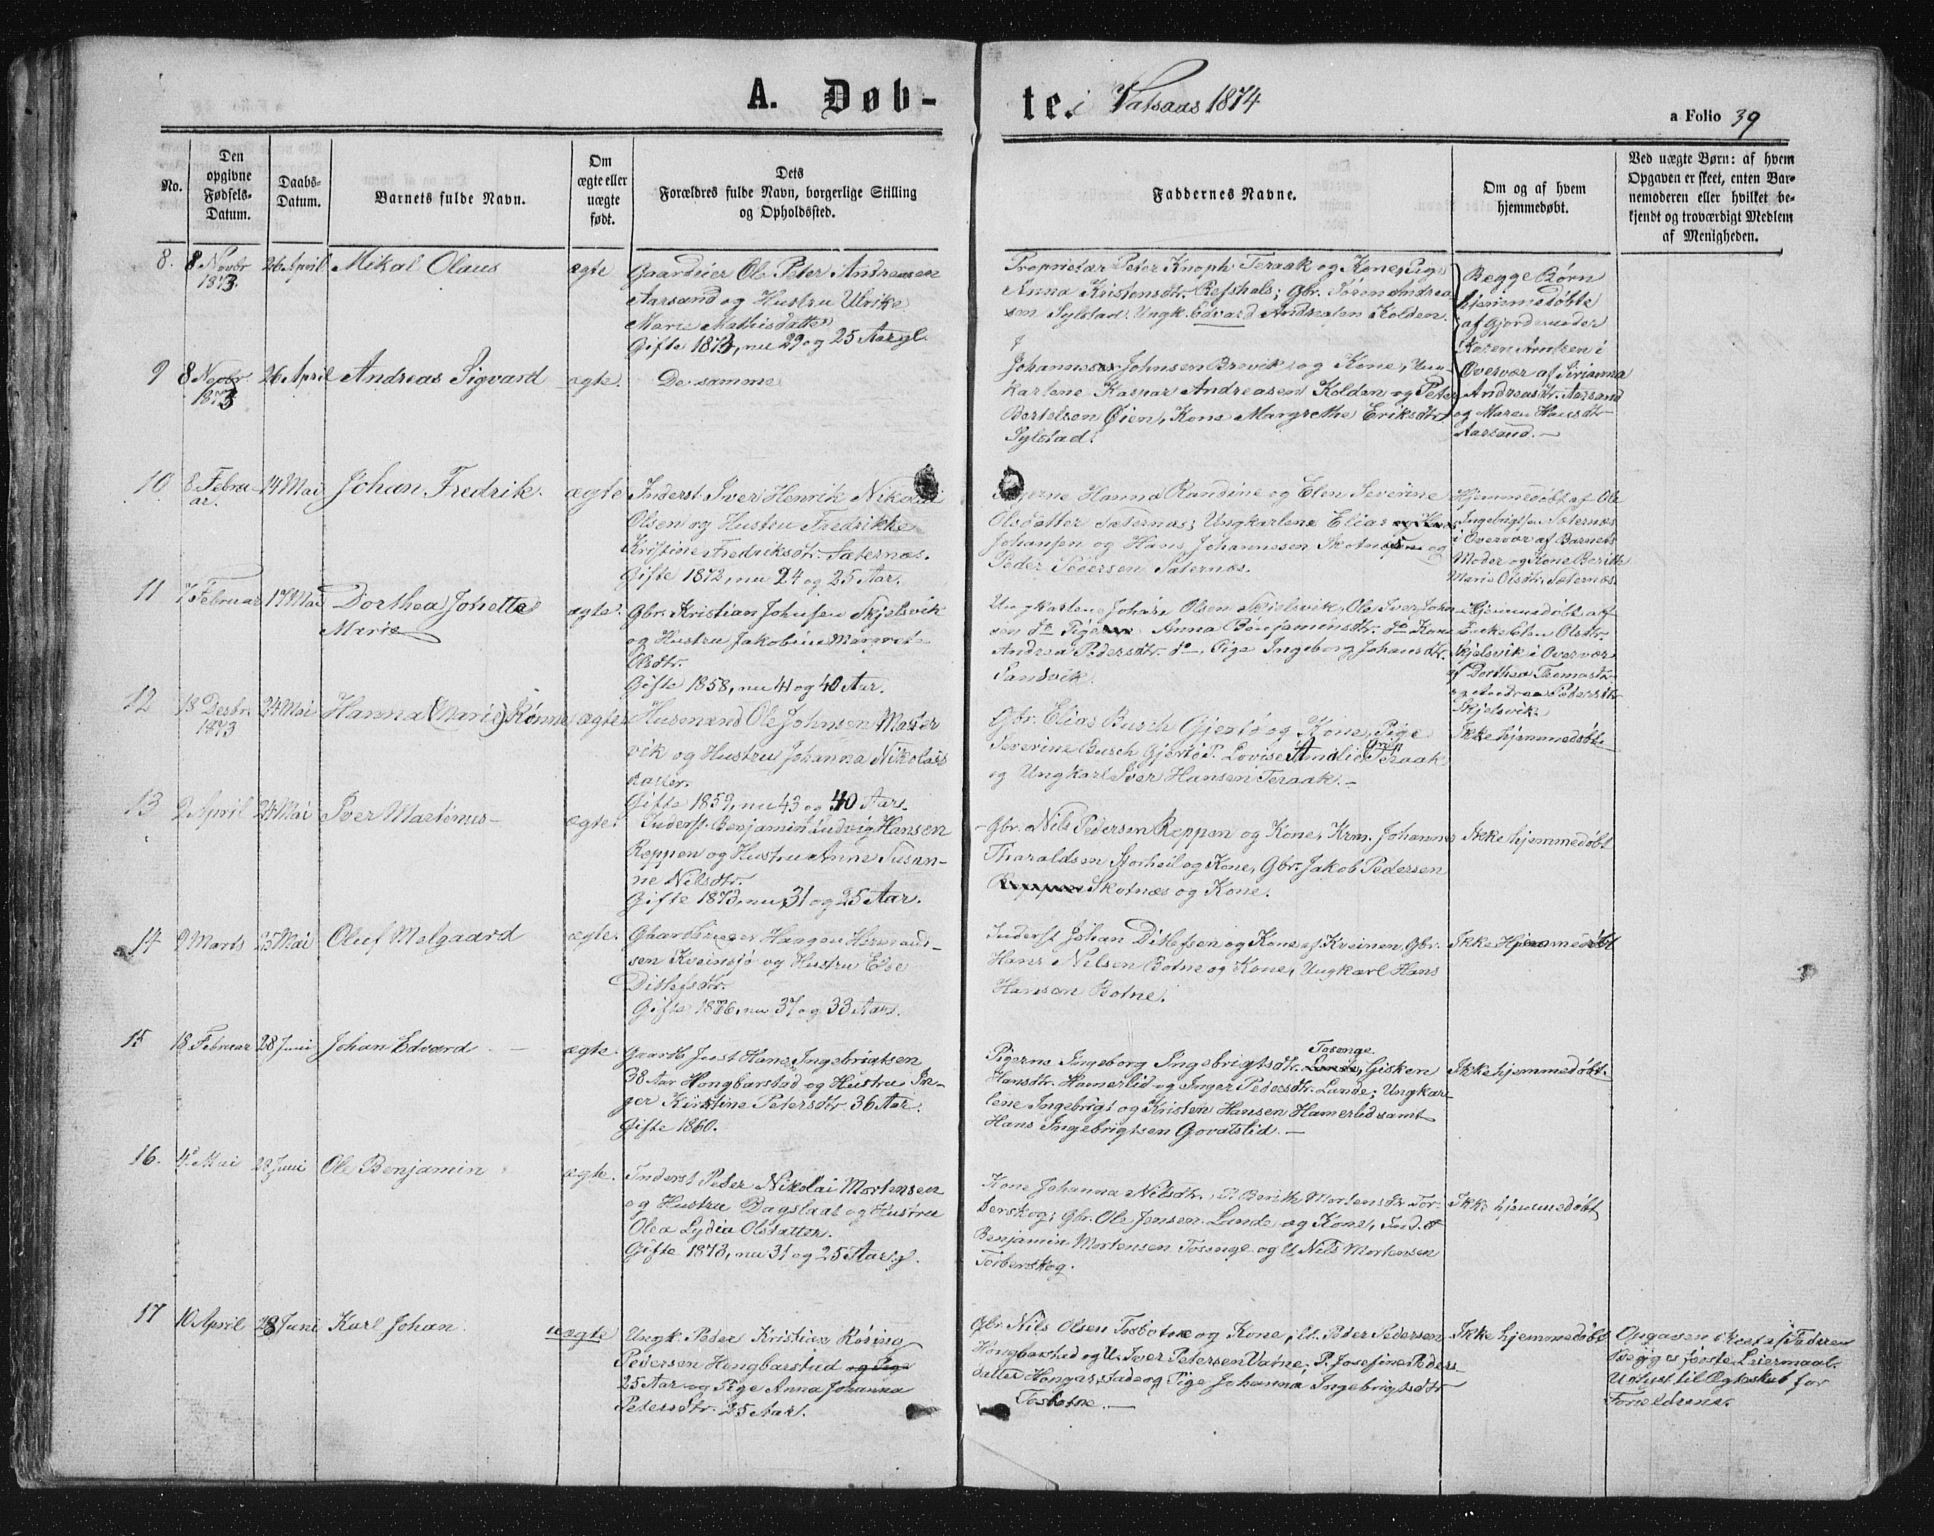 A. Døb-
te. i Vatsaas 1874
a Folio 39
No.
Den opgivne Fødsels-Datum.
Daabs-Datum.
Barnets fulde Navn.
Om ægte eller uægte født.
Dets Forældres fulde Navn, borgerlige Stilling og Opholdssted.
Faddernes Navne.
Om og af hvem hjemmedøbt.
Ved uægte Børn: af hvem
Opgaven er skeet, enten Bar-
nemoderen eller hvilket be-
kjendt og troværdigt Medlem
af Menigheden.
8. 8 Novbr 1873. 26 April Mikal Olaus ægte
Gaardeier Ole Peter Andreasen
Aarsand og Hustru Ulrike
Marie Mathisdatter
Gifte 1873, nu 29 og 25 Aar gl.
Proprietær Peter Knoph Teraak og Kone, Pige
Anna Kristensdtr. Refshals; Gbr. Søren Andrea-
sen Sylstad. Ungk. Edvard Andreasen Kolden.
Begge Børn
hjemmedøbte
af Gjordemoder
Karen Arntzen i
Overvær af Sirianna
Andreasdtr. Aarsand
og Maren Hansdtr
Aarsand.
9 8 Novbr. 1873 26 April Andreas Sigvard ægte.
De samme
Johannes Johnsen Brevik og Kone, Un-
karlene Kaspar Andreasen Kolden og Peter
Bertelsen Øien, Kone Margrethe Eriksdtr.
Sylstad.
10 8 Febru-
ar. 14 Mai Johan Fredrik. ægte
Inderst Iver Henrik Nikolai
Olsen og Hustru Fredrikke
Kristine Fredriksdtr. Sæternæs.
Gifte 1872, nu 24 og 25 Aar.
Hanna Randine og Elen Severine
Olsdatter Sæternæs; Ungkarlene Elias
Johansen og Hans Johannesen Skotnæs og
Peder Pedersen Sæternæs.
Hjemmedøbt af Ole
Ingebrigtsen Sæternæs
i Overvær af Barnets
Moder og Kone Berith
Maria Olsdtr. Sæternæs.
11 7 Februar 17 Mai Dorthea Jonette
Marie ægte.
Gbr. Kristian Johnsen Skjelsvik
og Hustru Jakobine Margrete
Olsdtr.
Gifte 1858, nu 41 og 40 Aar.
Ungkarlene Johan Olsen Skjelsvik, Ole Iver Johan-
sen do Pige Anna Benjaminsdtr. do Kone
Andrea Pedersdtr. do, Pige Ingeborg Johansdtr.
Sandvik.
Hjemmedøbt af
Olsdtr.
Skjelsvik i Overvær
af Dorthea Thomasdtr
og Andrea Pedersdtr
Skjelsvik.
12 18 Desbr. 1873 24 Mai Hanna (Marie) Rønne ægte.
Husmand Ole Johnsen Maser
vik og Hustru Johanna Nikolais
datter.
Gifte 1859, nu 43 og 40 Aar.
Gbr. Elias Busch Gjertø og Kone, Pige
Severine Busch Gjertø P. Lovise Amalie Grøn Teraak
og Ungkarl Iver Hansen Teraak.
Ikke hjemmedøbt.
13 2 April 24 Mai Iver Martinus ægte.
Inderst Benjamin Ludvig Hansen
Reppen og Hustru Anne Susan-
ne Nilsdtr.
Gifte 1873, nu 31 og 25 Aar.
Gbr. Nils Pedersen Reppen og Kone, Krm. Johannes
Tharaldsen Storheil og Kone, Gbr. Jakob Pedersen
Skotnæs og Kone.
Ikke hjemmedøbt
14 9 Marts 25 Mai Oluf Melgaard ægte.
Gaardbruger Haagen Hermand-
sen Kveinsjø og Hustru Else
Ditlefsdtr.
Gifte 1876, nu 37 og 33 Aar.
Inderst Johan Ditlefsen og Kone af Kveinen, Gbr.
Hans Nilsen Botne og Kone, Ungkarl Hans
Hansen Botne.
Ikke Hjemmedøbt
15 18 Februar 28 Juni Johan Edvard ægte.
Gaardb. Just Hans Ingebrigtsen
38 Aar Hongbarstad og Hustru In-
ger Kirstine Petersdtr 36 Aar.
Gifte 1860.
Pigerne Ingeborg Ingebrigtsdtr. Lande, Tosenge Gisken
Hansdtr. Hamerlid og Inger Pedersdtr. Lande; Ungkar-
lene Ingebrigt og Kristen Hansen Hamerlid samt
Hans Ingebrigtsen Govatslid.
Ikke hjemmedøbt.
16. 4 Mai 28 Juni Ole Benjamin ægte.
Inderst Peter Nikolai Mortensen
og Hustru Bagslaat og Hustru
Olea Lydia Olsdatter.
Gifte 1873, nu 31 og 25 Aar gl.
Kone Johanna Nilsdtr., P. Berith Mortensdtr. Tor-
berskog; Gbr. Ole Jensen Lande og Kone, Ind.st
Benjamin Mortensen Tosenge og U. Nils Mortensen
Torberskog.
Ikke hjemmedøbt
17 10 April 28 Juni Karl Johan. uægte
Ungk. Peder Kristian Røsing
Pedersen Hongbarstad og Pige
25 Aar og Pige Anna Johanna
Petersdtr. 25 Aar.
Gbr. Nils Olsen Tosbotne og Kone, U. Peder Pedersen
Hongbarstad og U. Iver Petersen Varne, P. Josefine Peders-
datter Hongbarstad og Pige Johanna Ingebrigtsdtr
Tosbotne.
Ikke hjemmedøbt
Opgaven skeet af Faderen
Begges første Leiermaal.
til Ægteskab for
Forældrene.